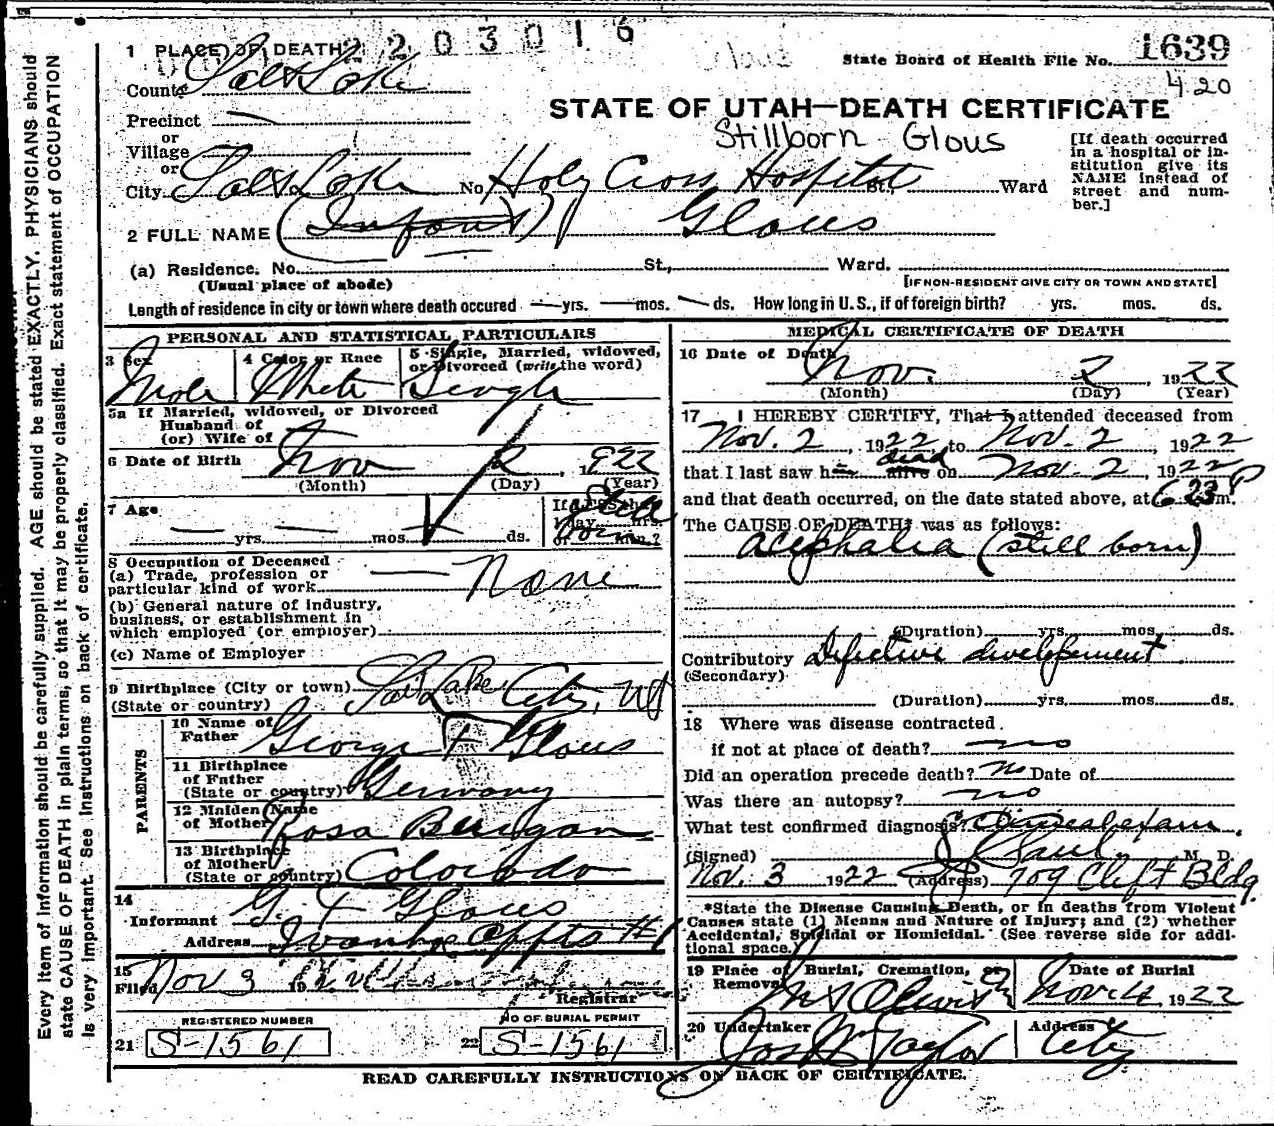 2203016
1 PLACE OF DEATH
State Board of Health File No. 1639
County Salt Lake
420
STATE OF UTAH—DEATH CERTIFICATE
Precinct —
Stillborn Glous
or
Village
or
City Salt Lake No. Holy Cross Hospital St., Ward
[If death occurred in a hospital or institution give its NAME instead of street and number.]
2 FULL NAME (Infant) Glous
(a) Residence. No. St., Ward.
(Usual place of abode)
[IF NON-RESIDENT GIVE CITY OR TOWN AND STATE]
Length of residence in city or town where death occured — yrs. — mos. — ds. How long in U. S., if of foreign birth? yrs. mos. ds.
PERSONAL AND STATISTICAL PARTICULARS
3 Sex
Male
4 Color or Race
White
5 Single, Married, widowed, or Divorced (write the word)
Single
5a If Married, widowed, or Divorced
Husband of
(or) Wife of
6 Date of Birth Nov 2, 1922
(Month) (Day) (Year)
7 Age — yrs. — mos. — ds.
Still born
8 Occupation of Deceased
(a) Trade, profession or
particular kind of work — None
(b) General nature of industry,
business, or establishment in
which employed (or employer)
(c) Name of Employer
9 Birthplace (City or town) Salt Lake City, Ut
(State or country)
PARENTS
10 Name of
Father George F Glous
11 Birthplace
of Father
(State or country) Germany
12 Maiden Name
of Mother Rosa
13 Birthplace
of Mother
(State or country) Colorado
14
Informant G. F Glous
Address Ivanhoe Appts #1
15
Filed Nov 3 19
Registrar
REGISTERED NUMBER
21 S-1561
NO OF BURIAL PERMIT
22 S-1561
MEDICAL CERTIFICATE OF DEATH
16 Date of Death
Nov. 2, 1922
(Month) (Day) (Year)
17 I HEREBY CERTIFY, That I attended deceased from
Nov. 2, 1922 to Nov. 2, 1922
that I last saw h alive dead on Nov. 2, 1922
and that death occurred, on the date stated above, at 6 23 P m.
The CAUSE OF DEATH* was as follows:
Acephalia (still born)
(Duration) yrs. mos. ds.
Contributory Defective development
(Secondary)
(Duration) yrs. mos. ds.
18 Where was disease contracted
if not at place of death? no
Did an operation precede death? no Date of
Was there an autopsy? no
What test confirmed diagnosis? Clinical exam.
(Signed) J. Paul M. D.
Nov. 3 1922 (Address) 709 Clift Bldg.
*State the Disease Causing Death, or in deaths from Violent
Causes state (1) Menns and Nature of Injury; and (2) whether
Accidental, Suicidal or Homicidal. (See reverse side for additional space.)
19 Place of Burial, Cremation, or
Removal Mt Olivet
Date of Burial
Nov. 4 1922
20 Undertaker
Jos Wm Taylor
Address
City
READ CAREFULLY INSTRUCTIONS ON BACK OF CERTIFICATE.
Every item of information should be carefully supplied. AGE should be stated EXACTLY. PHYSICIANS should
state CAUSE OF DEATH in plain terms, so that it may be properly classified. Exact statement of OCCUPATION
is very important. See instructions on back of certificate.